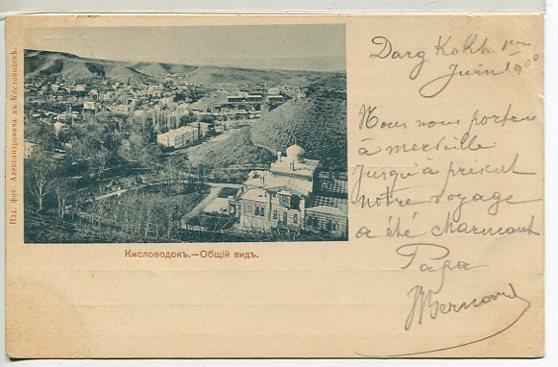 Изд. Фот. Александровича въ Кисловодскѣ.
Кисловодскъ.—Общій видъ.
Darg Kokh 1er
Juin 1900
Nous nous portons
a merveille
Jusqu'à present
notre voyage
a été charmant
Papa
Bernard